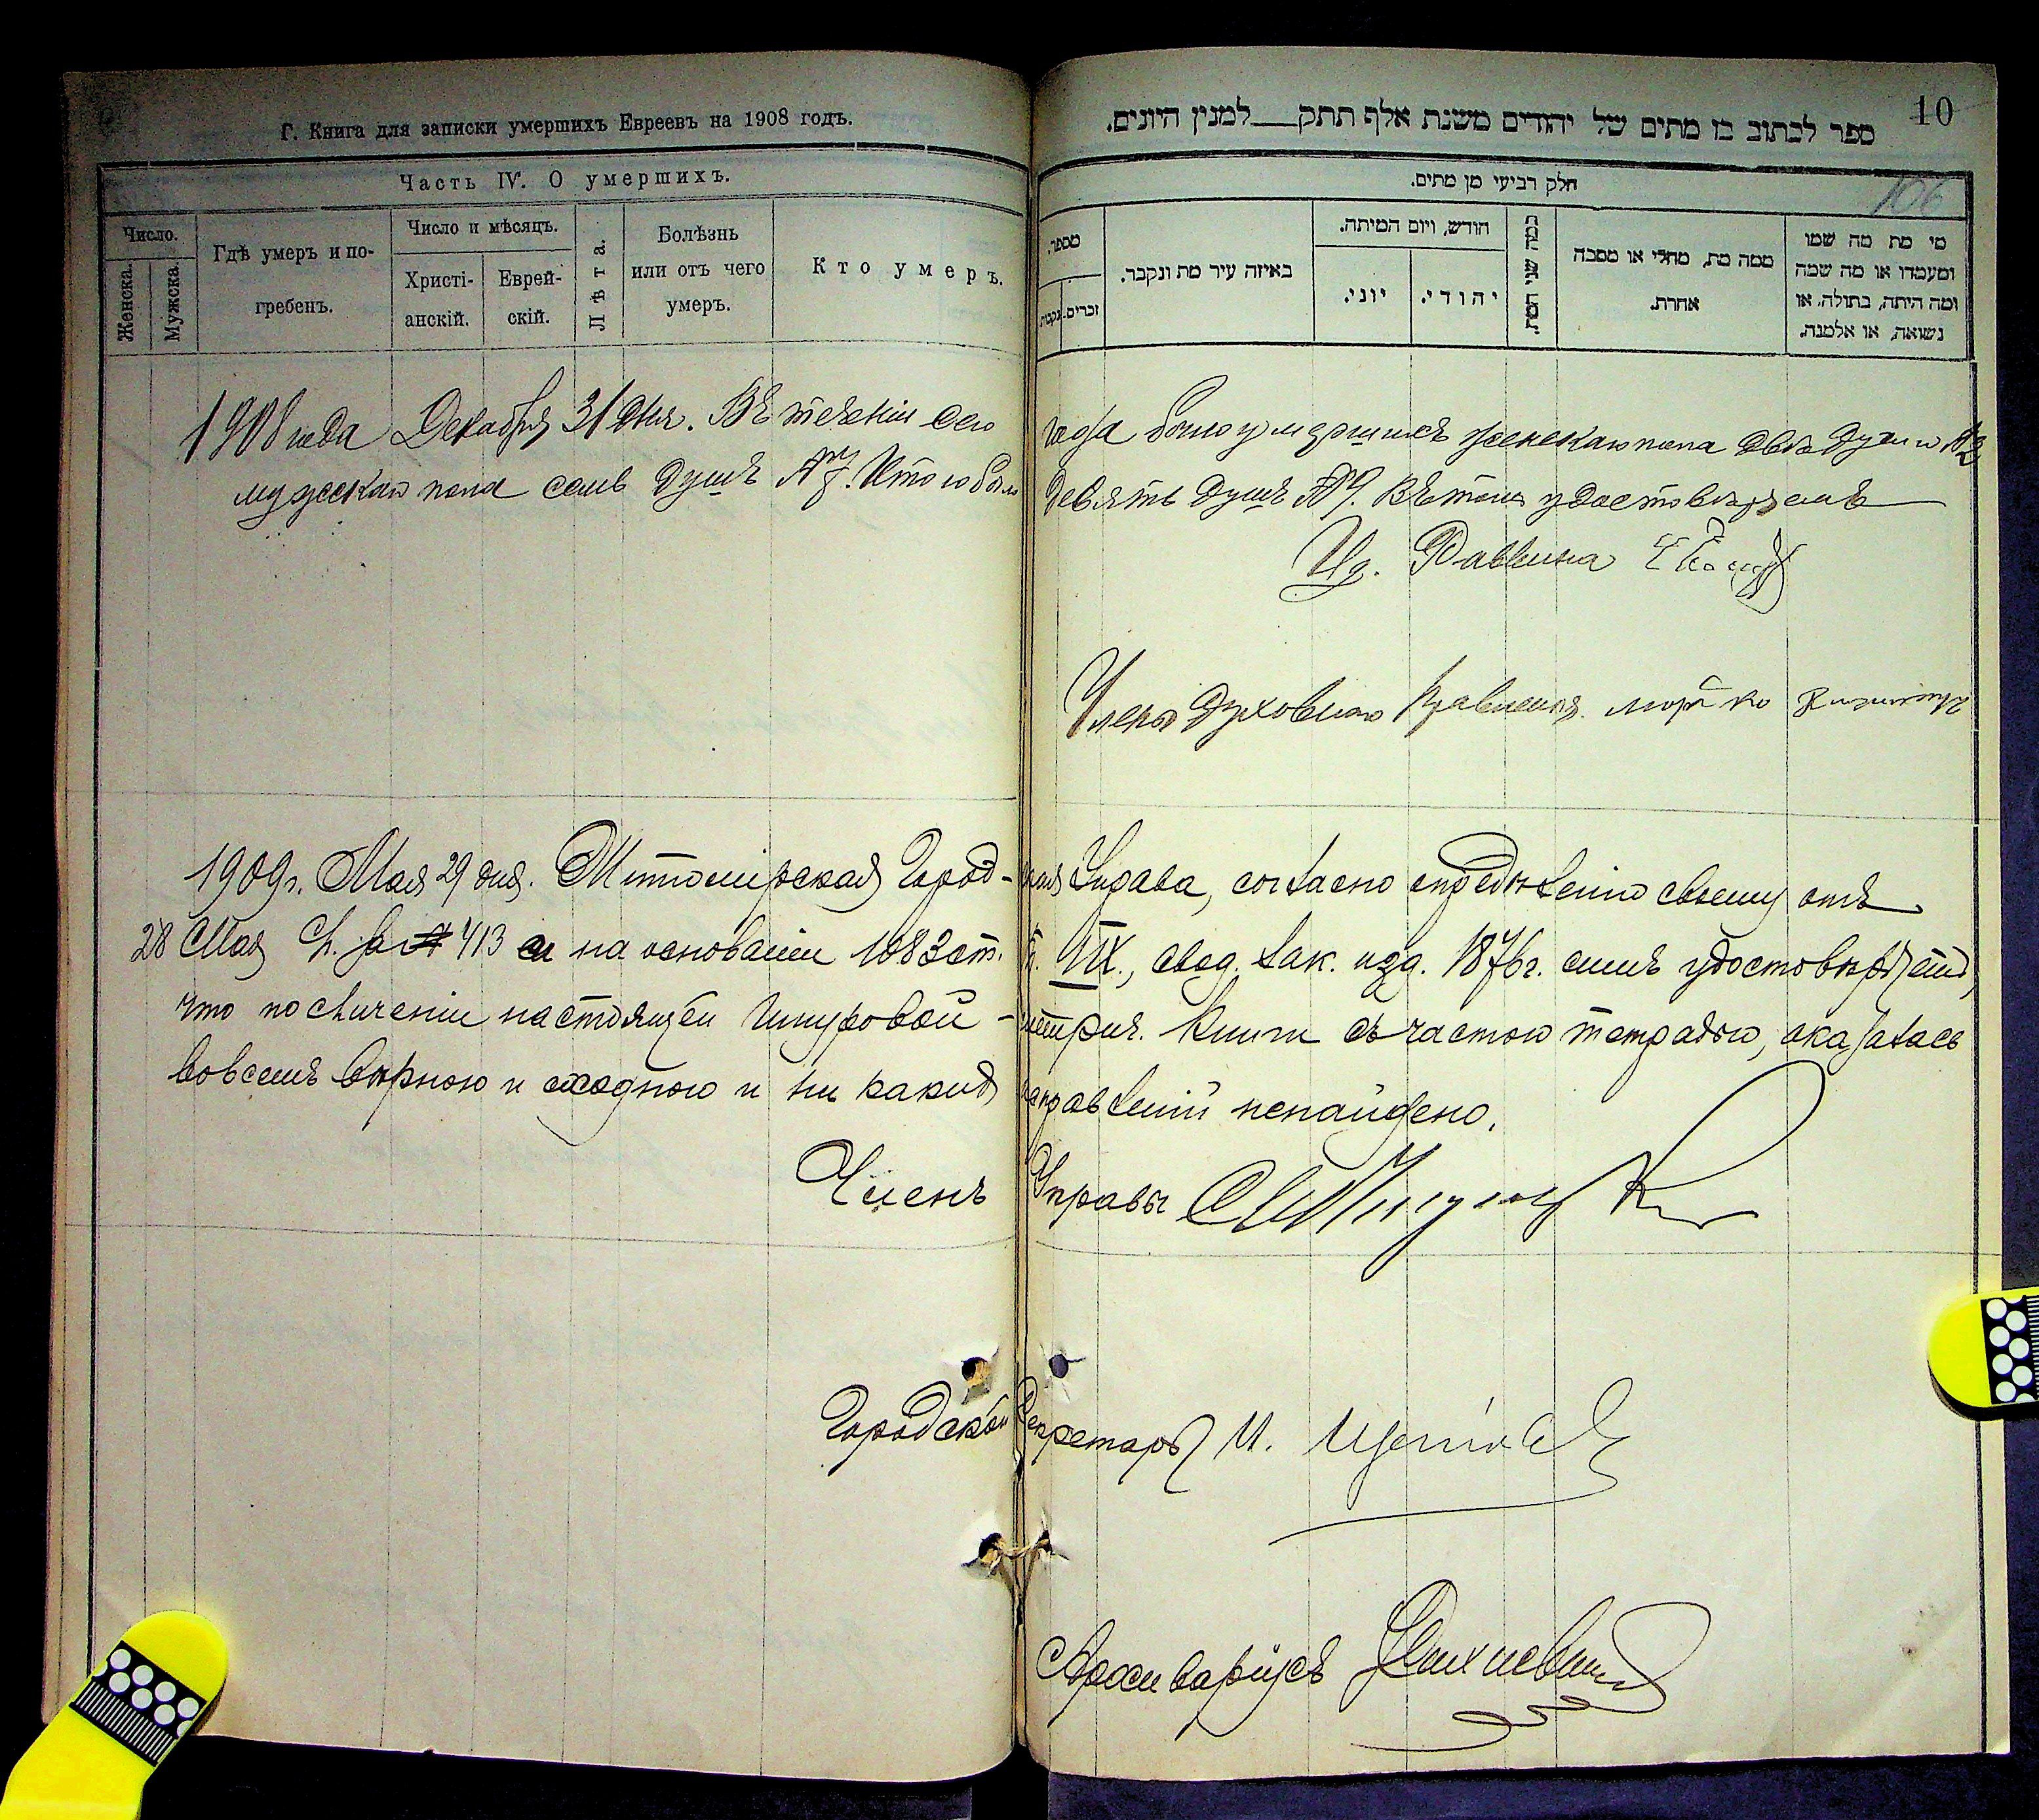 Г. Книга для записки умершихъ Евреевъ на 1908 годъ.
Часть IV. О умершихъ.
Число.
Женска.
Мужска.
Гдѣ умеръ и по-
гребенъ.
Число и мѣсяцъ.
Христі-
анскій.
Еврей-
скій.
Лѣта.
Болѣзнь
или отъ чего
умеръ.
Кто умеръ.
10
106
ספר לכתוב בו מתים של יהודים משנת אלף תתק___למנין היונים.
חלק רביעי מן מתים.
מספר.
נקבות.
זכרים.
באיזה עיר מת ונקבר.
חודש, ויום המיתה.
יוני.
יהודי.
כמה שני המת.
ממה מת, מחלי או מסבה
אחרת.
מי מת מה שמו
ומעמדו או מה שמה
ומה היתה, בתולה, או
נשואה, או אלמנה.
1908 года Декабря 31 дня. Въ теченіи сего года было умершихъ женскаго пола двѣ души №2
мужскаго пола семь душъ №7. Итого было девять душъ №9. Въ томъ удостовѣряемъ
Членъ Духовнаго Правленія
1909 г. Мая 29 дня. Житомірская Город-ская Управа, согласно опредѣленію своему отъ
28 Мая с.г. за № 413 и на основаніи 1083 ст. т. IX., свод. зак. изд. 1876 г. симъ удостовѣряетъ,
что по сличеніи настоящей шнуровой - метрич. книги съ частою тетрадью, оказалась
вовсемъ вѣрною и сходною и ни какихъ исправленій ненайдено.
Членъ Управы
Городской Секретарь И.
Архиваріусъ